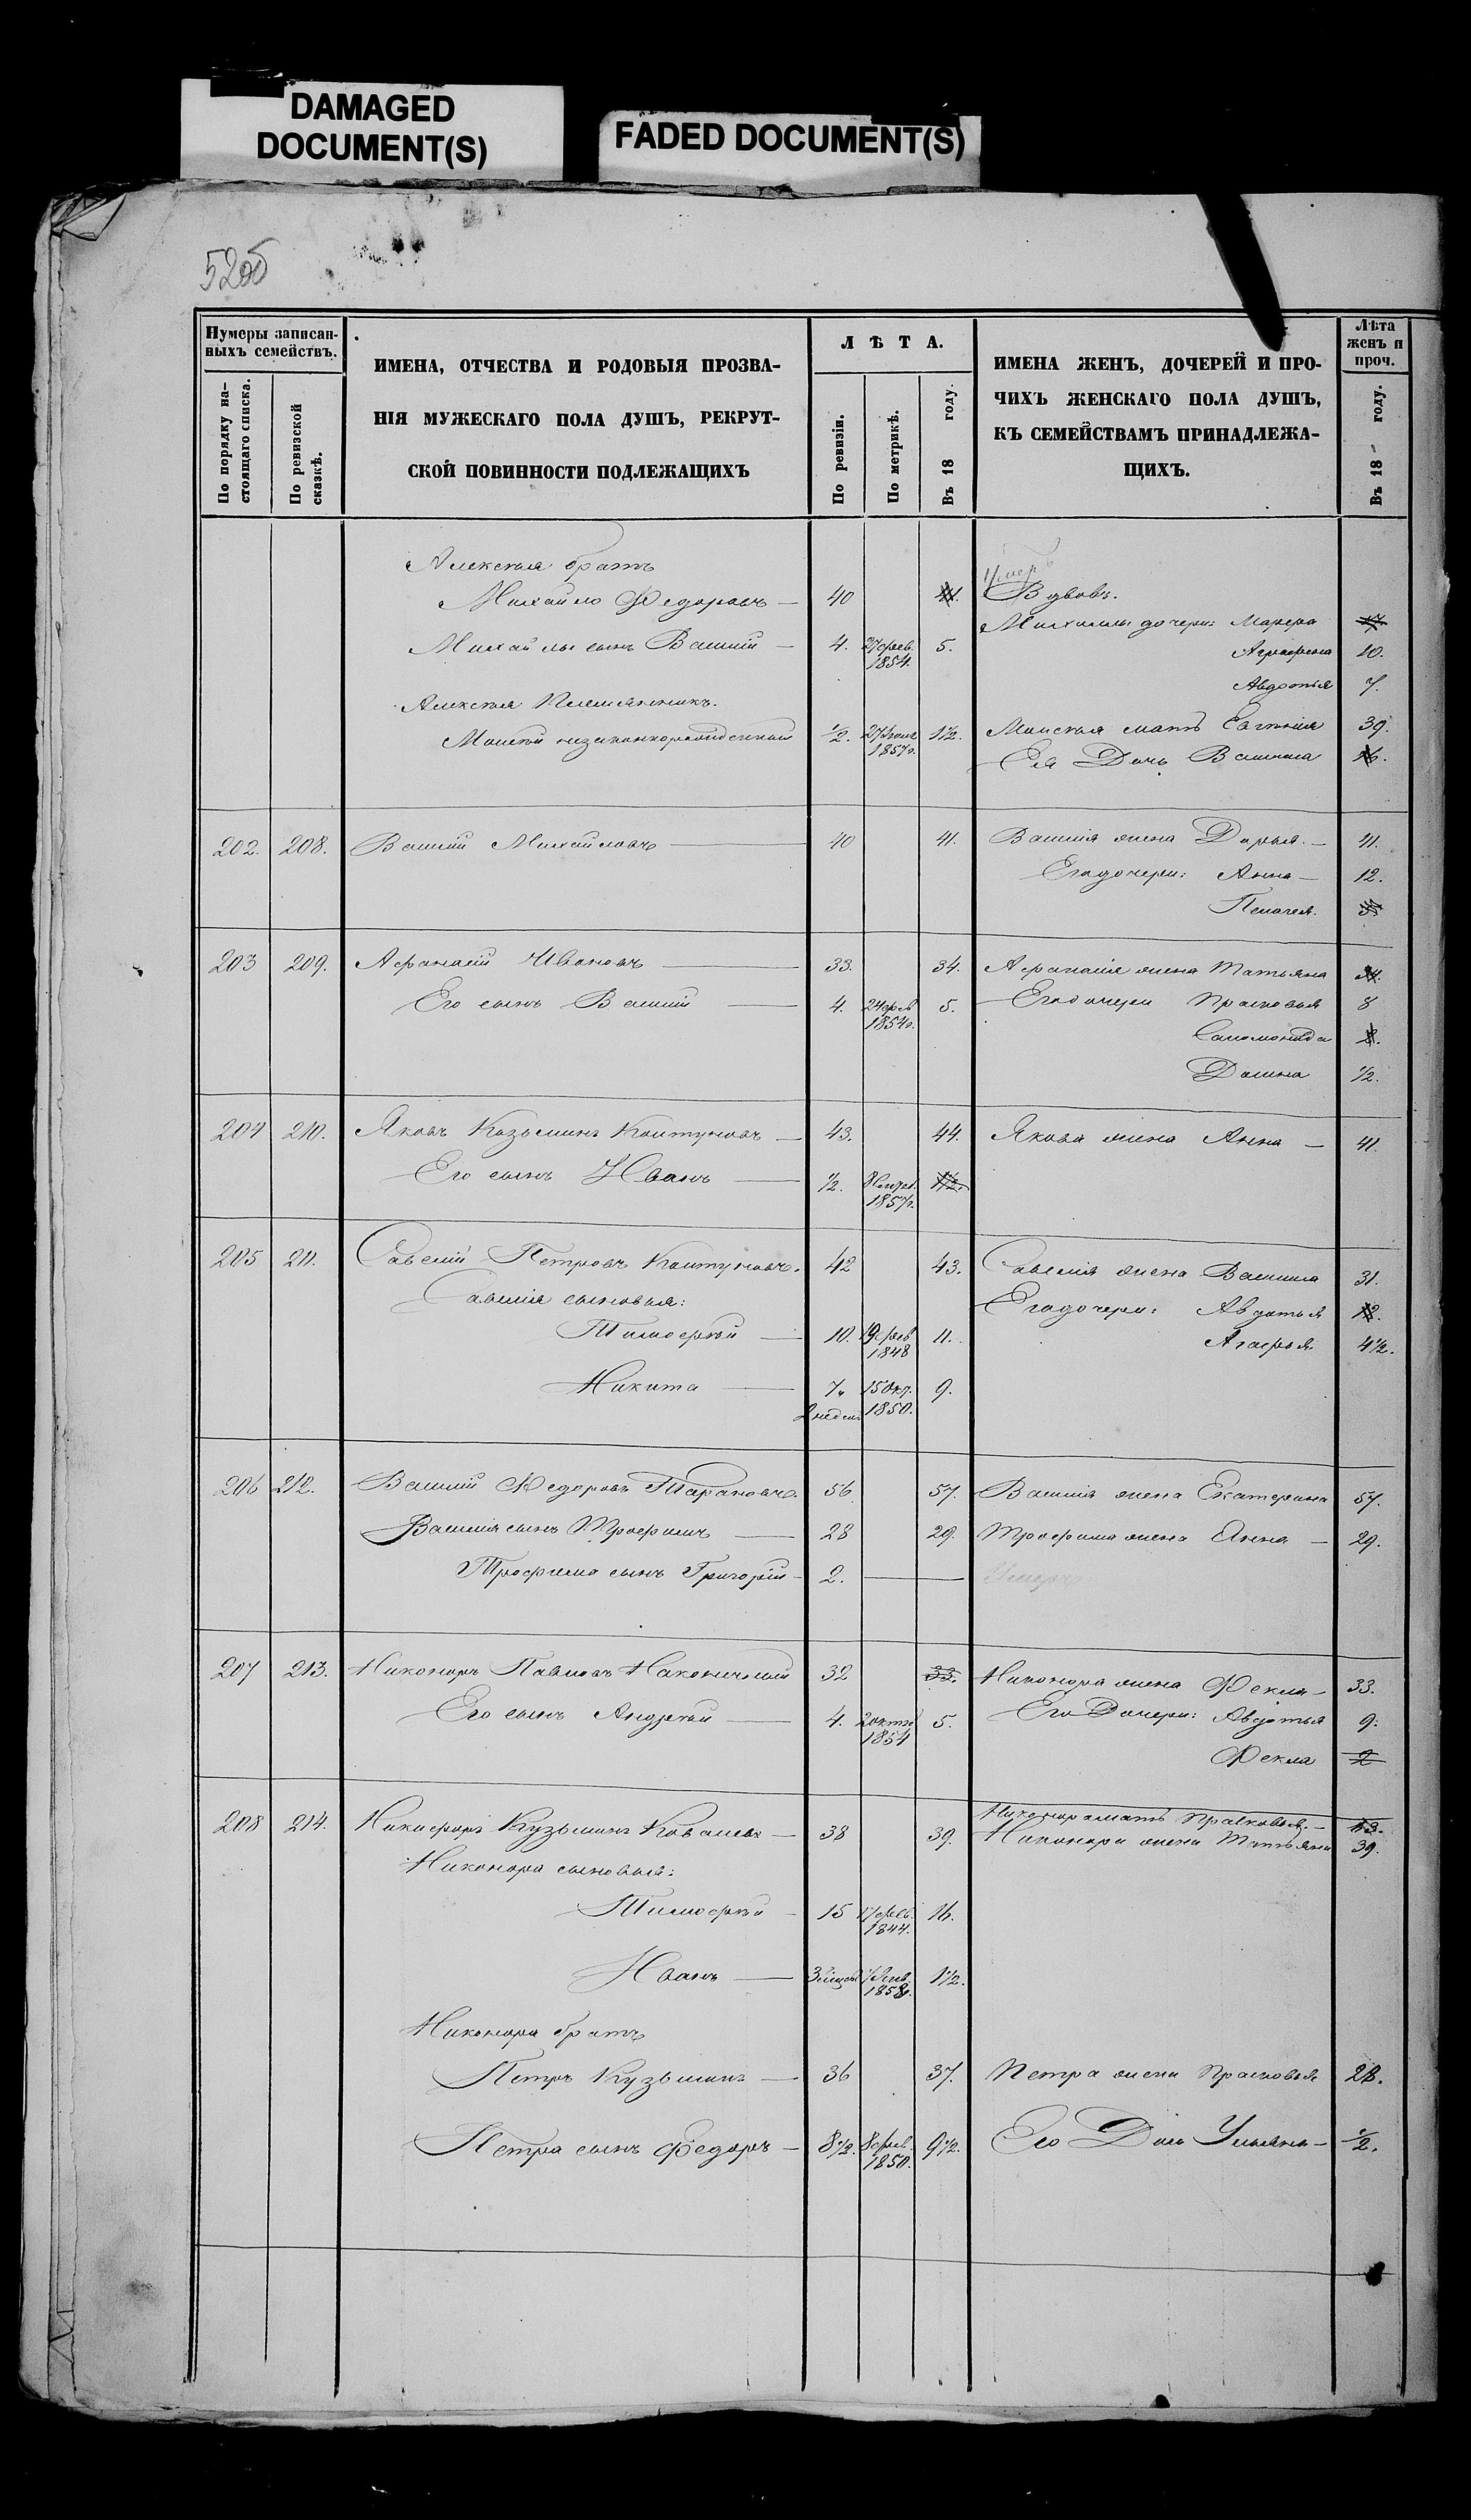 DAMAGED
DOCUMENT(S)
FADED DOCUMENT(S)
52об
Нумеры записан-
ныхъ семействъ.
По порядку на-
стоящаго списка.
По ревизской
сказкѣ.
ИМЕНА, ОТЧЕСТВА И РОДОВЫЯ ПРОЗВА-
НІЯ МУЖЕСКАГО ПОЛА ДУШЪ, РЕКРУТ-
СКОЙ ПОВИННОСТИ ПОДЛЕЖАЩИХЪ
ЛѢТА.
По ревизіи.
По метрикѣ.
Въ 18 году.
ИМЕНА ЖЕНЪ, ДОЧЕРЕЙ И ПРО-
ЧИХЪ ЖЕНСКАГО ПОЛА ДУШЪ,
КЪ СЕМЕЙСТВАМЪ ПРИНАДЛЕЖА-
ЩИХЪ.
Лѣта
женъ и
проч.
Въ 18 году.
Алексѣя братъ
Умеръ
Михайло Федоровъ — 40 41. Вдовъ.
Михайлы дочери: Марфа
Михайлы сынъ Василій — 4. 27 фев. 1854. 5.
Аграфена 10.
Авдотья 7.
Алексѣя Племянникъ.
Моисей незаконнорожденный 1/2. 1857г. 1 1/2. Моисея мать Евгенія 39.
Ея Дочь Василиса 16.
202. 208. Василій Михайловъ 40 41. Василія жена Дарья. — 41.
Его дочери: Анна — 12.
Пелагея.
203 209. Афанасій Ивановъ 33. 34. Афанасія жена Татьяна 34.
Его сынъ Василій 4. 24 фев 1854г. 5. Его дочери Прасковья 8
Соломонида
Домна 1/2.
204 210. Яковъ Козьминъ Колтуновъ — 43. 44. Якова жена Анна — 41.
Его сынъ Иванъ 1/2. 1857г. 1 1/2.
205 211. Савелій Петровъ Колтуновъ. 42 43. Савелія жена Василиса 31.
Савелія сыновья: Его дочери: Авдотья
Тимофей — 10. 19 фев 1848 11. Агафья. 4 1/2.
Никита 7. 15 Окт. 1850. 9.
2 недели
206 212. Василій Федоровъ Тарановъ. 56. 57. Василія жена Екатерина 57.
Василія сынъ Трофимъ 28 29. Трофима жена Анна — 29.
Трофима сынъ Григорій — 2. Умеръ
207 213. Никоноръ Павловъ Наконечный 32 33. Никонора жена Фекла — 33.
Его сынъ Андрей 4. 2 октя 1854 5. Его Дочери: Авдотья 9.
Фекла 2
Никонора мать Прасковья. — 53.
208 214. Никифоръ Кузьминъ Ковалевъ — 38 39. Никонора жена Татьяна 39.
Никонора сыновья:
Тимофей — 15 17 фев. 1844. 16.
Иванъ 3 месяц 7 Янв. 1858г. 1 1/2.
Никонора братъ
Петръ Кузьминъ — 36 37. Петра жена Прасковья 28.
Петра сынъ Федоръ — 8 1/2. 8 фев. 1850. 9 1/2. Его Дочь Ульяна — 1/2.